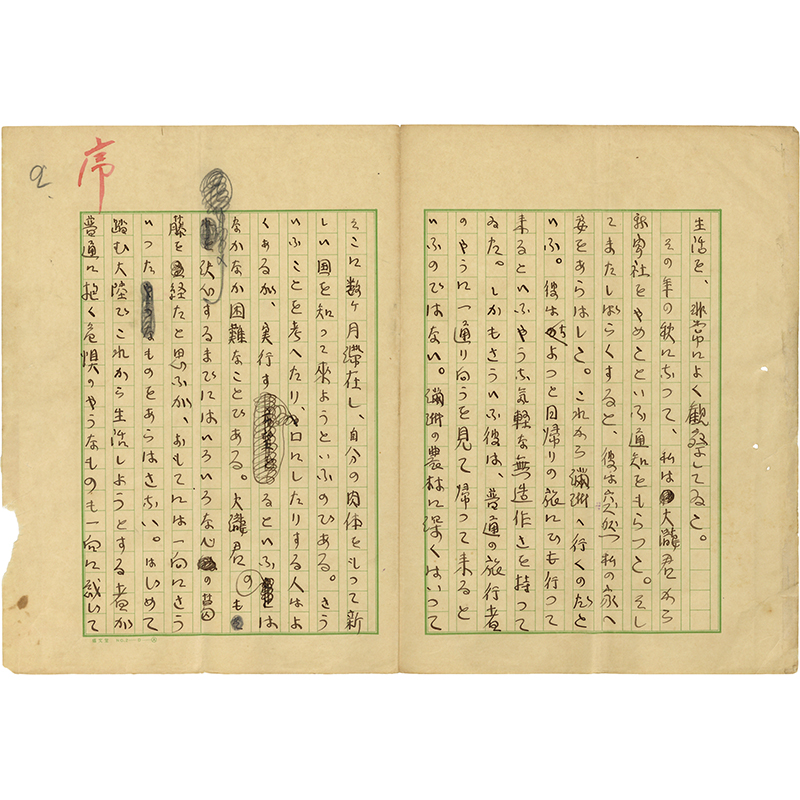 生活を、非常によく観察してゐた。
その年の秋になつて、私は大瀧君から
新聞社をやめたといふ通知をもらつた。そし
てまたしばらくすると、彼は突然私の家へ
姿をあらはした。これから満洲へ行くのだと
いふ。彼はちよつと日帰りの旅にでも行つて
来るといふやうな気軽な無造作さを持つて
ゐた。しかもさういふ彼は、普通の旅行者
のやうに一通り向うを見て帰つて来ると
いふのではない。満洲の農村に深くはいつて
そこに数ヶ月滞在し、自分の肉体をもつて新
しい国を知つて来ようといふのである。さう
いふことを考へたり、口にしたりする人はよ
くあるが、実行するといふは
なかなか困難なことである。大瀧君のも
決心するまでにはいろいろな心の苦
藤を経たと思ふが、おもてには一向にさう
いつたものをあらはさない。はじめて
踏む大陸でこれから生活しようとする者が
普通に抱く危惧のやうなものも一向に感じて
序
2